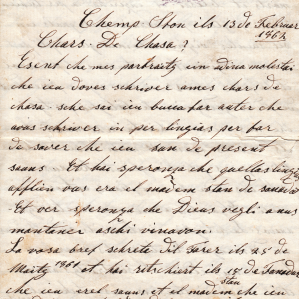 Chemp-ston ils 13 de Februar
1862
Chars. De Chasa?
Esent che mes portraitz ein adina molestai
che ieu doves schriver a mes chars de
chasa. sche sai ieu bucca far auter che
avos schriver in per lingias per far
de saver che ieu san de present
sauns. Et hai speronza che quellas lingias
er a il madem stan de sanadad
Et ver speronza che Dieus vegli a nus
mantaner aschi vinavon.
La vosa bref schrete dil Farer ils 25 de
Martz 1861 et hai retschiert ils 15 de
stan
che ieu erel sauns et il madem che ieu